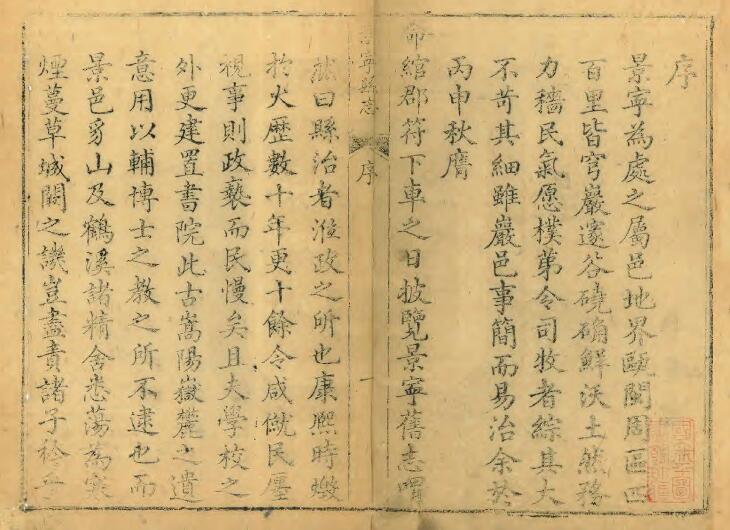 序
景寧為處之屬邑地界甌閩周區四
百里皆穹巖邃谷磽确鮮沃土然務
力穡民氣愿樸苐令司牧者綜其大
不苛其細雖巖邑事簡而易治余於
丙申秋膺
命綰郡符下車之日披覽景寧舊志喟
景寧縣志
序
一
然曰縣治者涖政之所也康熙時燬
於火歷數十年更十餘令咸僦民廛
視事則政褻而民慢矣且夫學校之
外更建置書院此古嵩陽嶽麓之遺
意用以輔博士之教之所不逮也而
景邑豸山及鶴溪諸精舍悉蕩為寒
煙蔓草城闕之譏豈盡責諸子衿